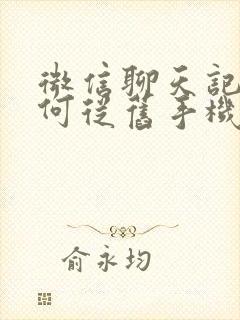 微信聊天記
何從舊手機
俞永均